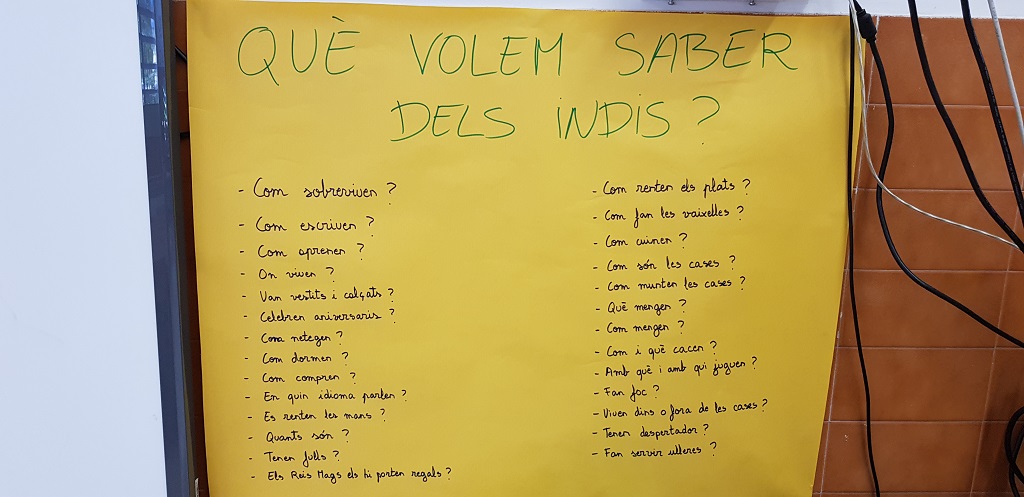 QUÈ VOLEM SABER
DELS INDIS?
- Com sobreviven?
- Com escriuen?
- Com aprenen?
- On viuen?
- Van vestits i calçats?
- Celebren aniversaris?
- Com netegen?
- Com dormen?
- Com compren?
- En quin idioma parlen?
- Es renten les mans?
- Quants són?
- Tenen fulls?
- Els Reis Mags els hi porten regals?
- Com renten els plats?
- Com fan les vaixelles?
- Com cuinen?
- Com són les cases?
- Com munten les cases?
- Què mengen?
- Com mengen?
- Com i què cacen?
- Amb què i amb qui juguen?
- Fan foc?
- Viuen dins o fora de les cases?
- Tenen despertador?
- Fan servir ulleres?